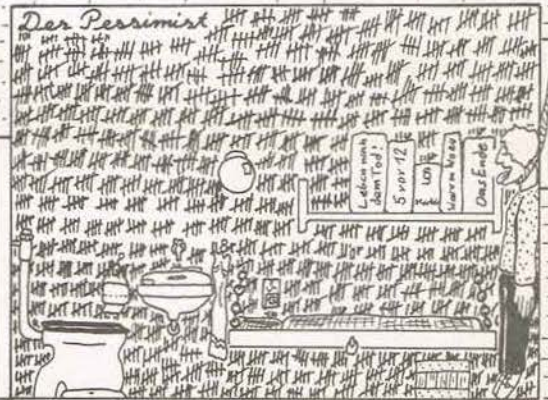 Der Pessimist
Leben nach
dem Tod!
5 vor 12
Ich
warum
Das Ende